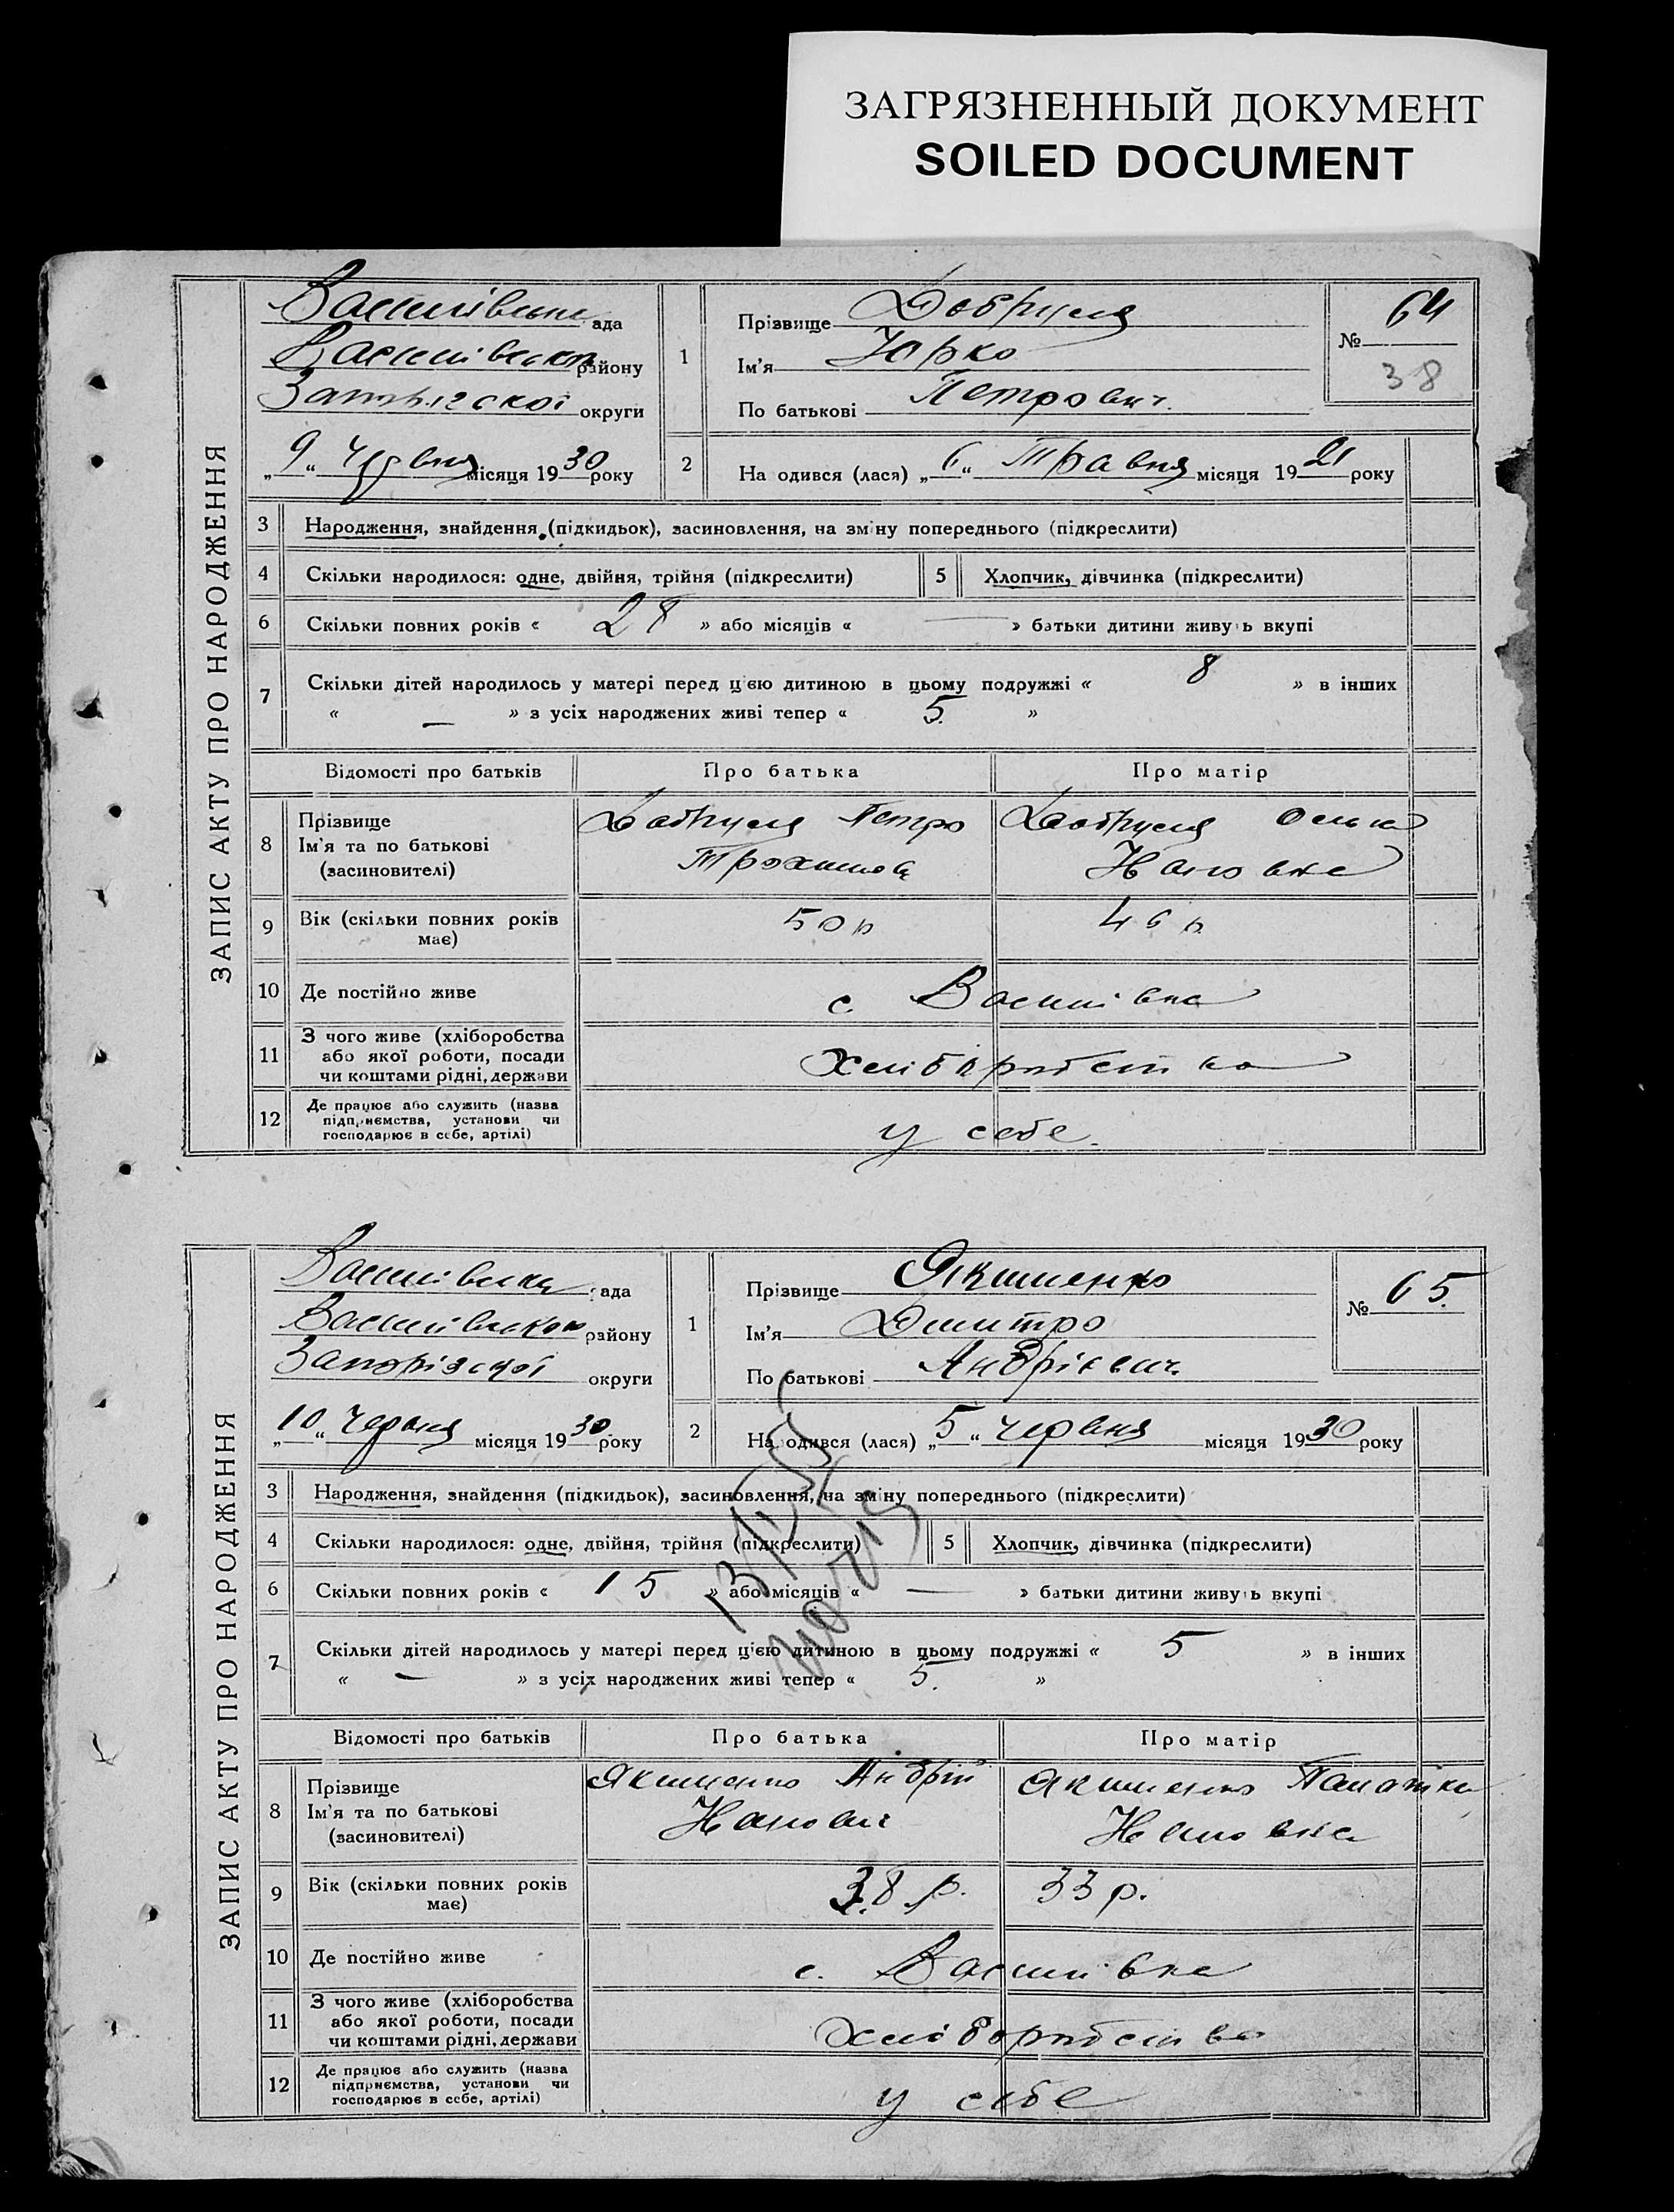 ЗАГРЯЗНЕННЫЙ ДОКУМЕНТ
SOILED DOCUMENT
ЗАПИС АКТУ ПРО НАРОДЖЕННЯ
Василівська ада
Василівського району
Запорізької округи
„9“ Червня місяця 1930 року
1
Прізвище Добруля
Ім'я Юрко
По батькові Петрович
№ 64
38
2
На одився (лася) „6“ Травня місяця 1921 року
3 Народження, знайдення (підкидьок), засиновлення, на зміну попереднього (підкреслити)
4 Скільки народилося: одне, двійня, трійня (підкреслити) 5 Хлопчик, дівчинка (підкреслити)
6 Скільки повних років « 28 » або місяців « — » батьки дитини живуть вкупі
7 Скільки дітей народилось у матері перед цією дитиною в цьому подружжі « 8 » в інших
« — » з усіх народжених живі тепер « 5. »
Відомості про батьків Про батька Про матір
8 Прізвище
Ім'я та по батькові
(засиновителі)
Добруля Петро
Трохимов
Добруля
9 Вік (скільки повних років
має)
50 р 46 р.
10 Де постійно живе с. Василівка
11 З чого живе (хліборобства
або якої роботи, посади
чи коштами рідні, держави
хліборобства
12 Де працює або служить (назва
підприємства, установи чи
господарює в себе, артілі)
у себе.
ЗАПИС АКТУ ПРО НАРОДЖЕННЯ
Василівська ада
Василівського району
Запорізської округи
„10“ Червня місяця 1930 року
1
Прізвище Якименко
Ім'я Дмитро
По батькові Андрієвич.
№ 65.
2
На одився (лася) „5“ червня місяця 1930 року
3 Народження, знайдення (підкидьок), засиновлення, на зміну попереднього (підкреслити)
4 Скільки народилося: одне, двійня, трійня (підкреслити) 5 Хлопчик, дівчинка (підкреслити)
6 Скільки повних років « 15 » або місяців « — » батьки дитини живуть вкупі
7 Скільки дітей народилось у матері перед цією дитиною в цьому подружжі « 5 » в інших
« — » з усіх народжених живі тепер « 5. »
Відомості про батьків Про батька Про матір
8 Прізвище
Ім'я та по батькові
(засиновителі)
Якименко Андрій
Якименко
9 Вік (скільки повних років
має)
38 р. 33 р.
10 Де постійно живе с. Василівка
11 З чого живе (хліборобства
або якої роботи, посади
чи коштами рідні, держави
хліборобства
12 Де працює або служить (назва
підприємства, установи чи
господарює в себе, артілі)
у себе